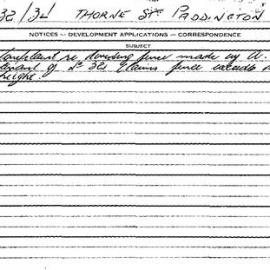 32/34 THORNE ST. PADDINGTON
NOTICES — DEVELOPMENT APPLICATIONS — CORRESPONDENCE
SUBJECT
Complaint re dividing fence made by
of No 32 Claims fence exceeds
height.